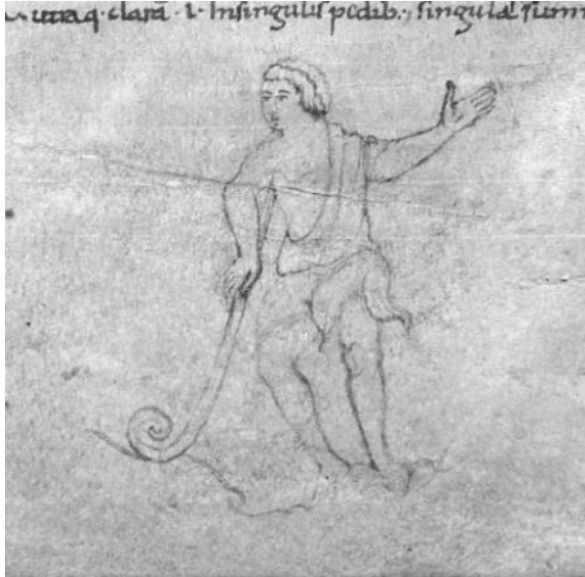 utraq· clara · I · In singulis pedib; singulae sum